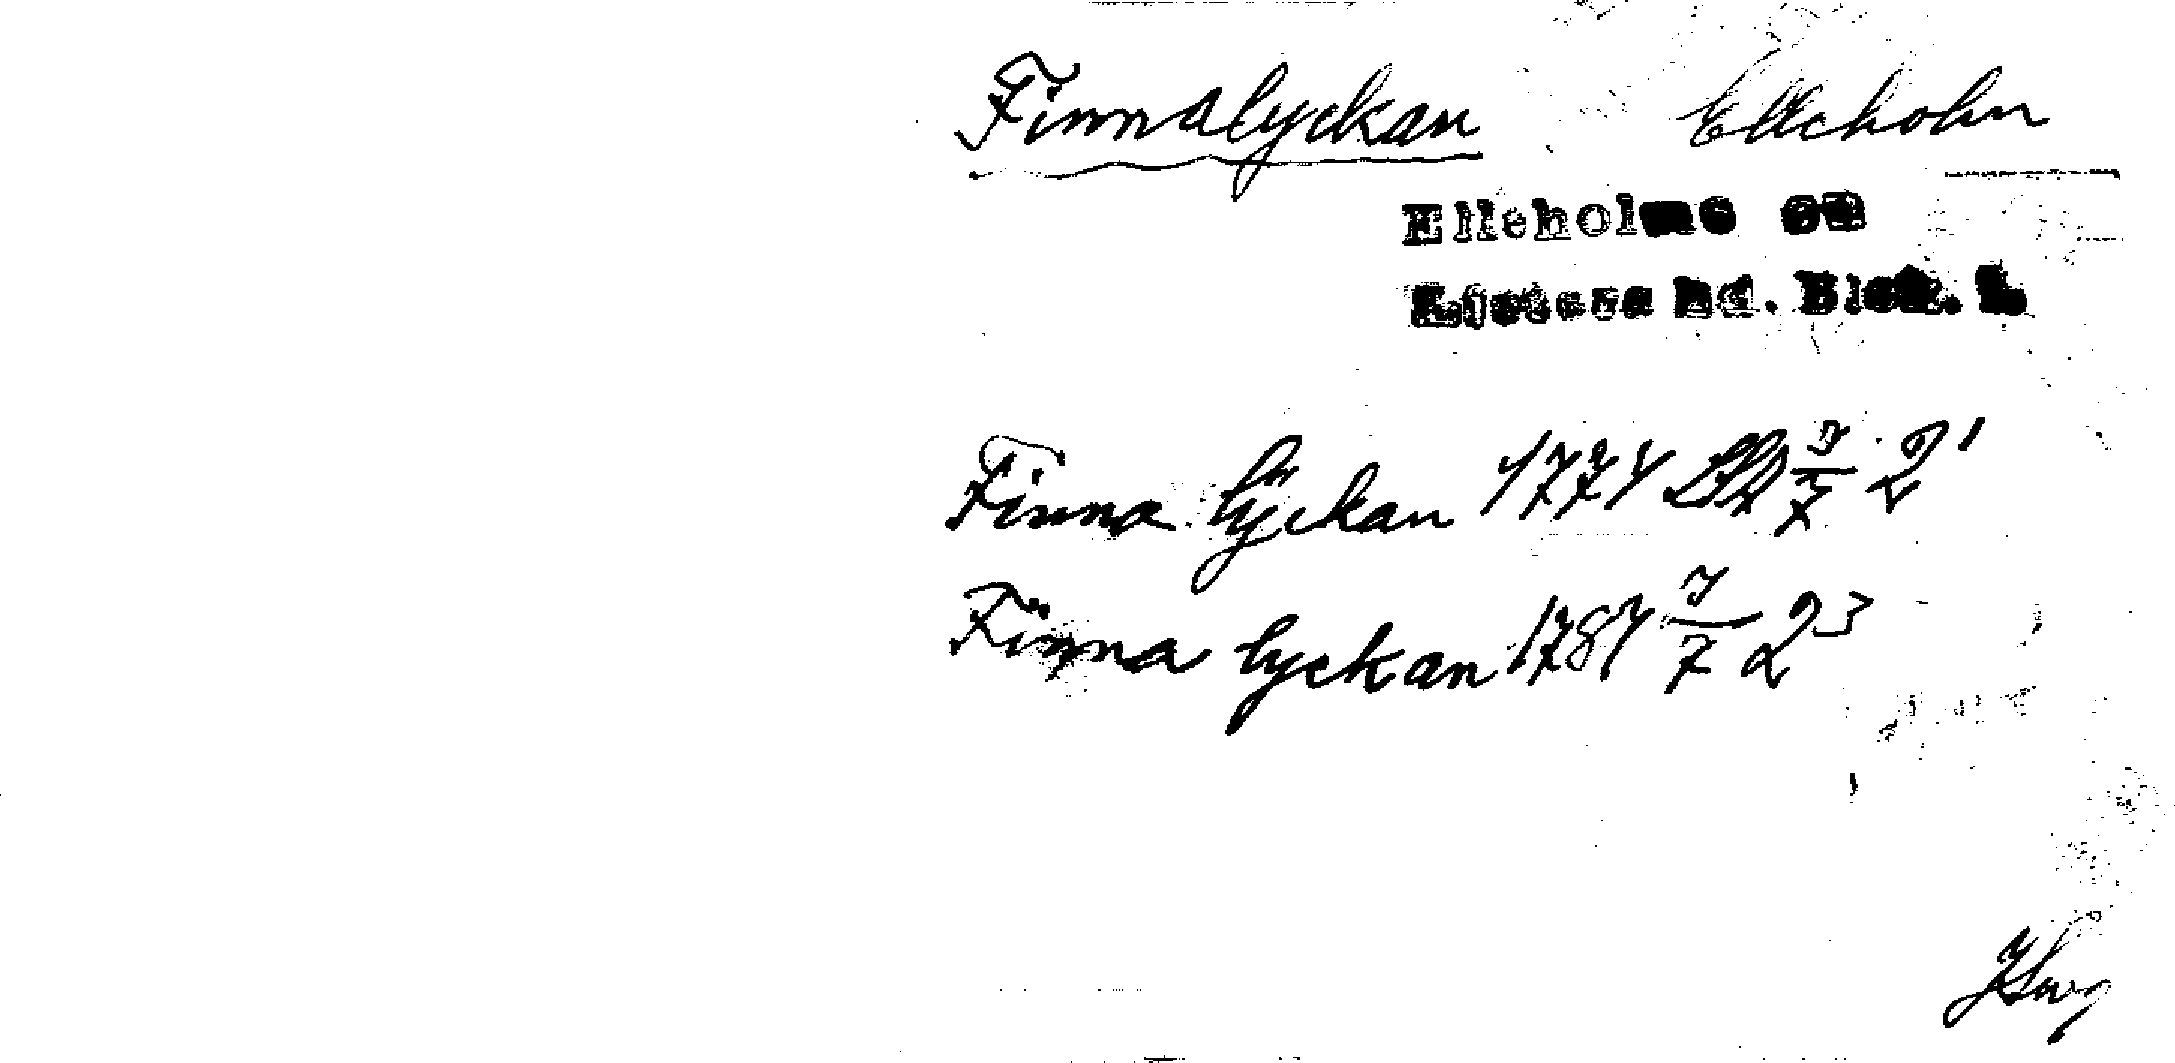 Finnalyckan Elleholm
Elleholms sn
Listers hd. Blek. l.
Finna lÿckan 1774 7/7 2¹
Finna lyckan 1787 7/7 2³